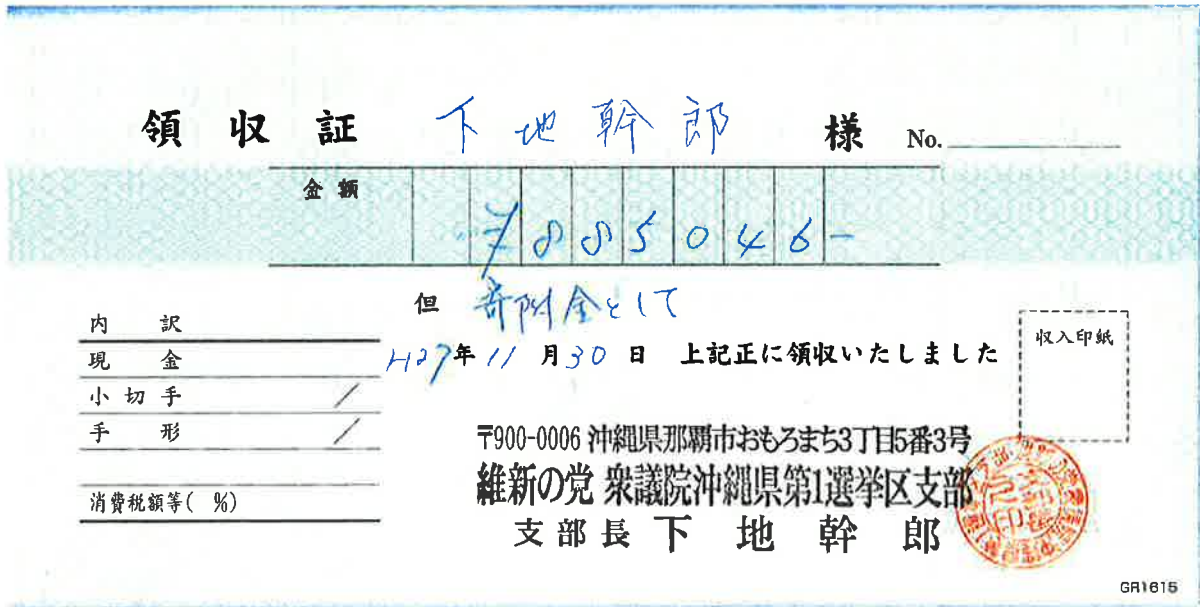 領収証 下地幹郎 様 No.
金額 7885046-
但 寄附金として
H27年11月30日 上記正に領収いたしました
内訳
現金
小切手 /
手形 /
消費税額等( %)
収入印紙
〒900-0006 沖縄県那覇市おもろまち3丁目5番3号
維新の党 衆議院沖縄県第1選挙区支部
支部長 下地幹郎
GR1615